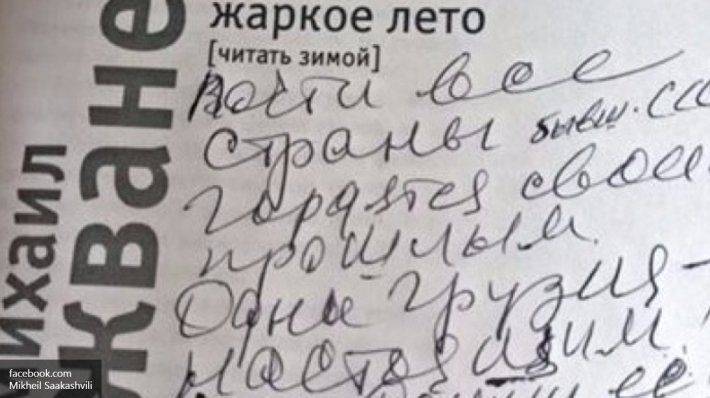 жаркое лето
[читать зимой]
ихаил
жване
почти все
страны бывш. СС
гордятся свои
прошлым.
Одна Грузия -
настоящим.
ее
facebook.com
Mikheil Saakashvili